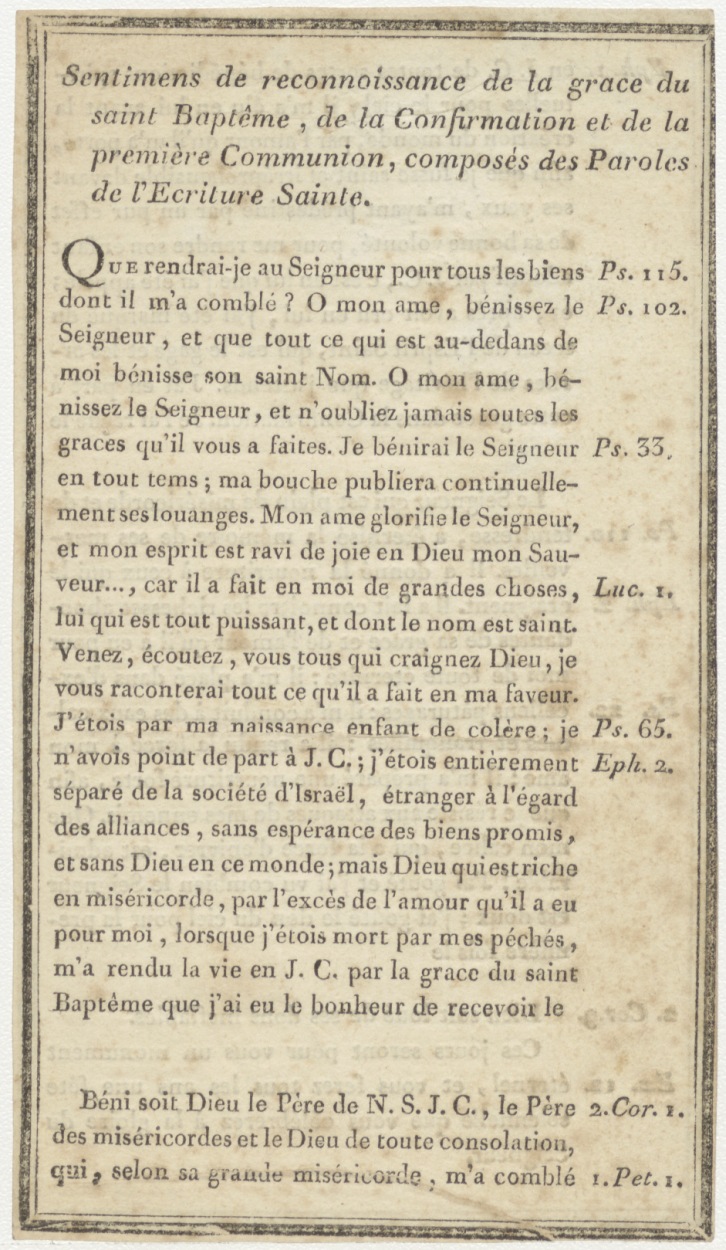 Sentimens de reconnoissance de la grace du
saint Baptême , de la Confirmation et de la
première Communion, composés des Paroles
de l'Ecriture Sainte.
QUE rendrai-je au Seigneur pour tous les biens Ps. 115.
dont il m'a comblé ? O mon ame, bénissez le Ps. 102.
Seigneur , et que tout ce qui est au-dedans de
moi bénisse son saint Nom. O mon ame, bé-
nissez le Seigneur, et n'oubliez jamais toutes les
graces qu'il vous a faites. Je bénirai le Seigneur Ps. 33.
en tout tems ; ma bouche publiera continuelle-
ment ses louanges. Mon ame glorifie le Seigneur,
et mon esprit est ravi de joie en Dieu mon Sau-
veur..., car il a fait en moi de grandes choses, Luc. 1.
lui qui est tout puissant, et dont le nom est saint.
Venez, écoutez , vous tous qui craignez Dieu, je
vous raconterai tout ce qu'il a fait en ma faveur.
J'étois par ma naissance enfant de colère ; je Ps. 65.
n'avois point de part à J. C. ; j'étois entièrement Eph. 2.
séparé de la société d'Israël, étranger à l'égard
des alliances , sans espérance des biens promis,
et sans Dieu en ce monde ; mais Dieu qui est riche
en miséricorde, par l'excès de l'amour qu'il a eu
pour moi , lorsque j'étois mort par mes péchés,
m'a rendu la vie en J. C. par la grace du saint
Baptême que j'ai eu le bonheur de recevoir le
Béni soit Dieu le Père de N. S. J. C., le Père 2. Cor. 1.
des miséricordes et le Dieu de toute consolation,
qui, selon sa grande miséricorde, m'a comblé 1. Pet. 1.